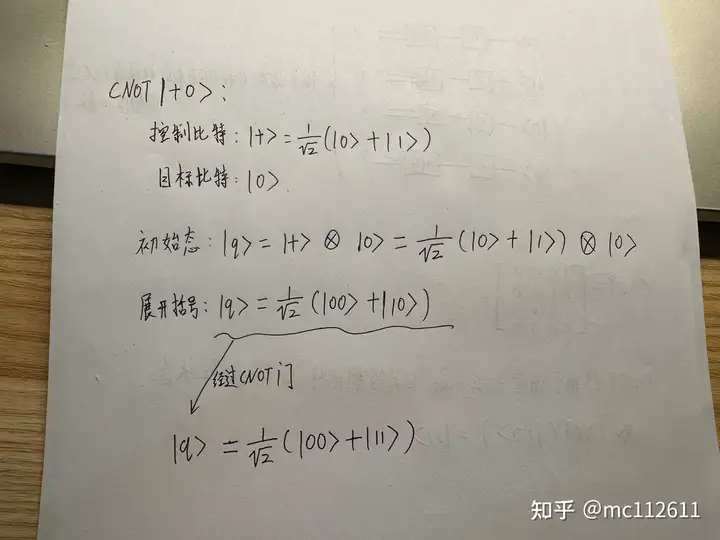 CNOT|+0>:
控制比特:|+>=1/√2(|0>+|1>)
目标比特:|0>
初始态:|q>=|+>⊗|0>=1/√2(|0>+|1>)⊗|0>
展开括号:|q>=1/√2(|00>+|10>)
经过CNOT门
|q>=1/√2(|00>+|11>)
知乎 @mc112611